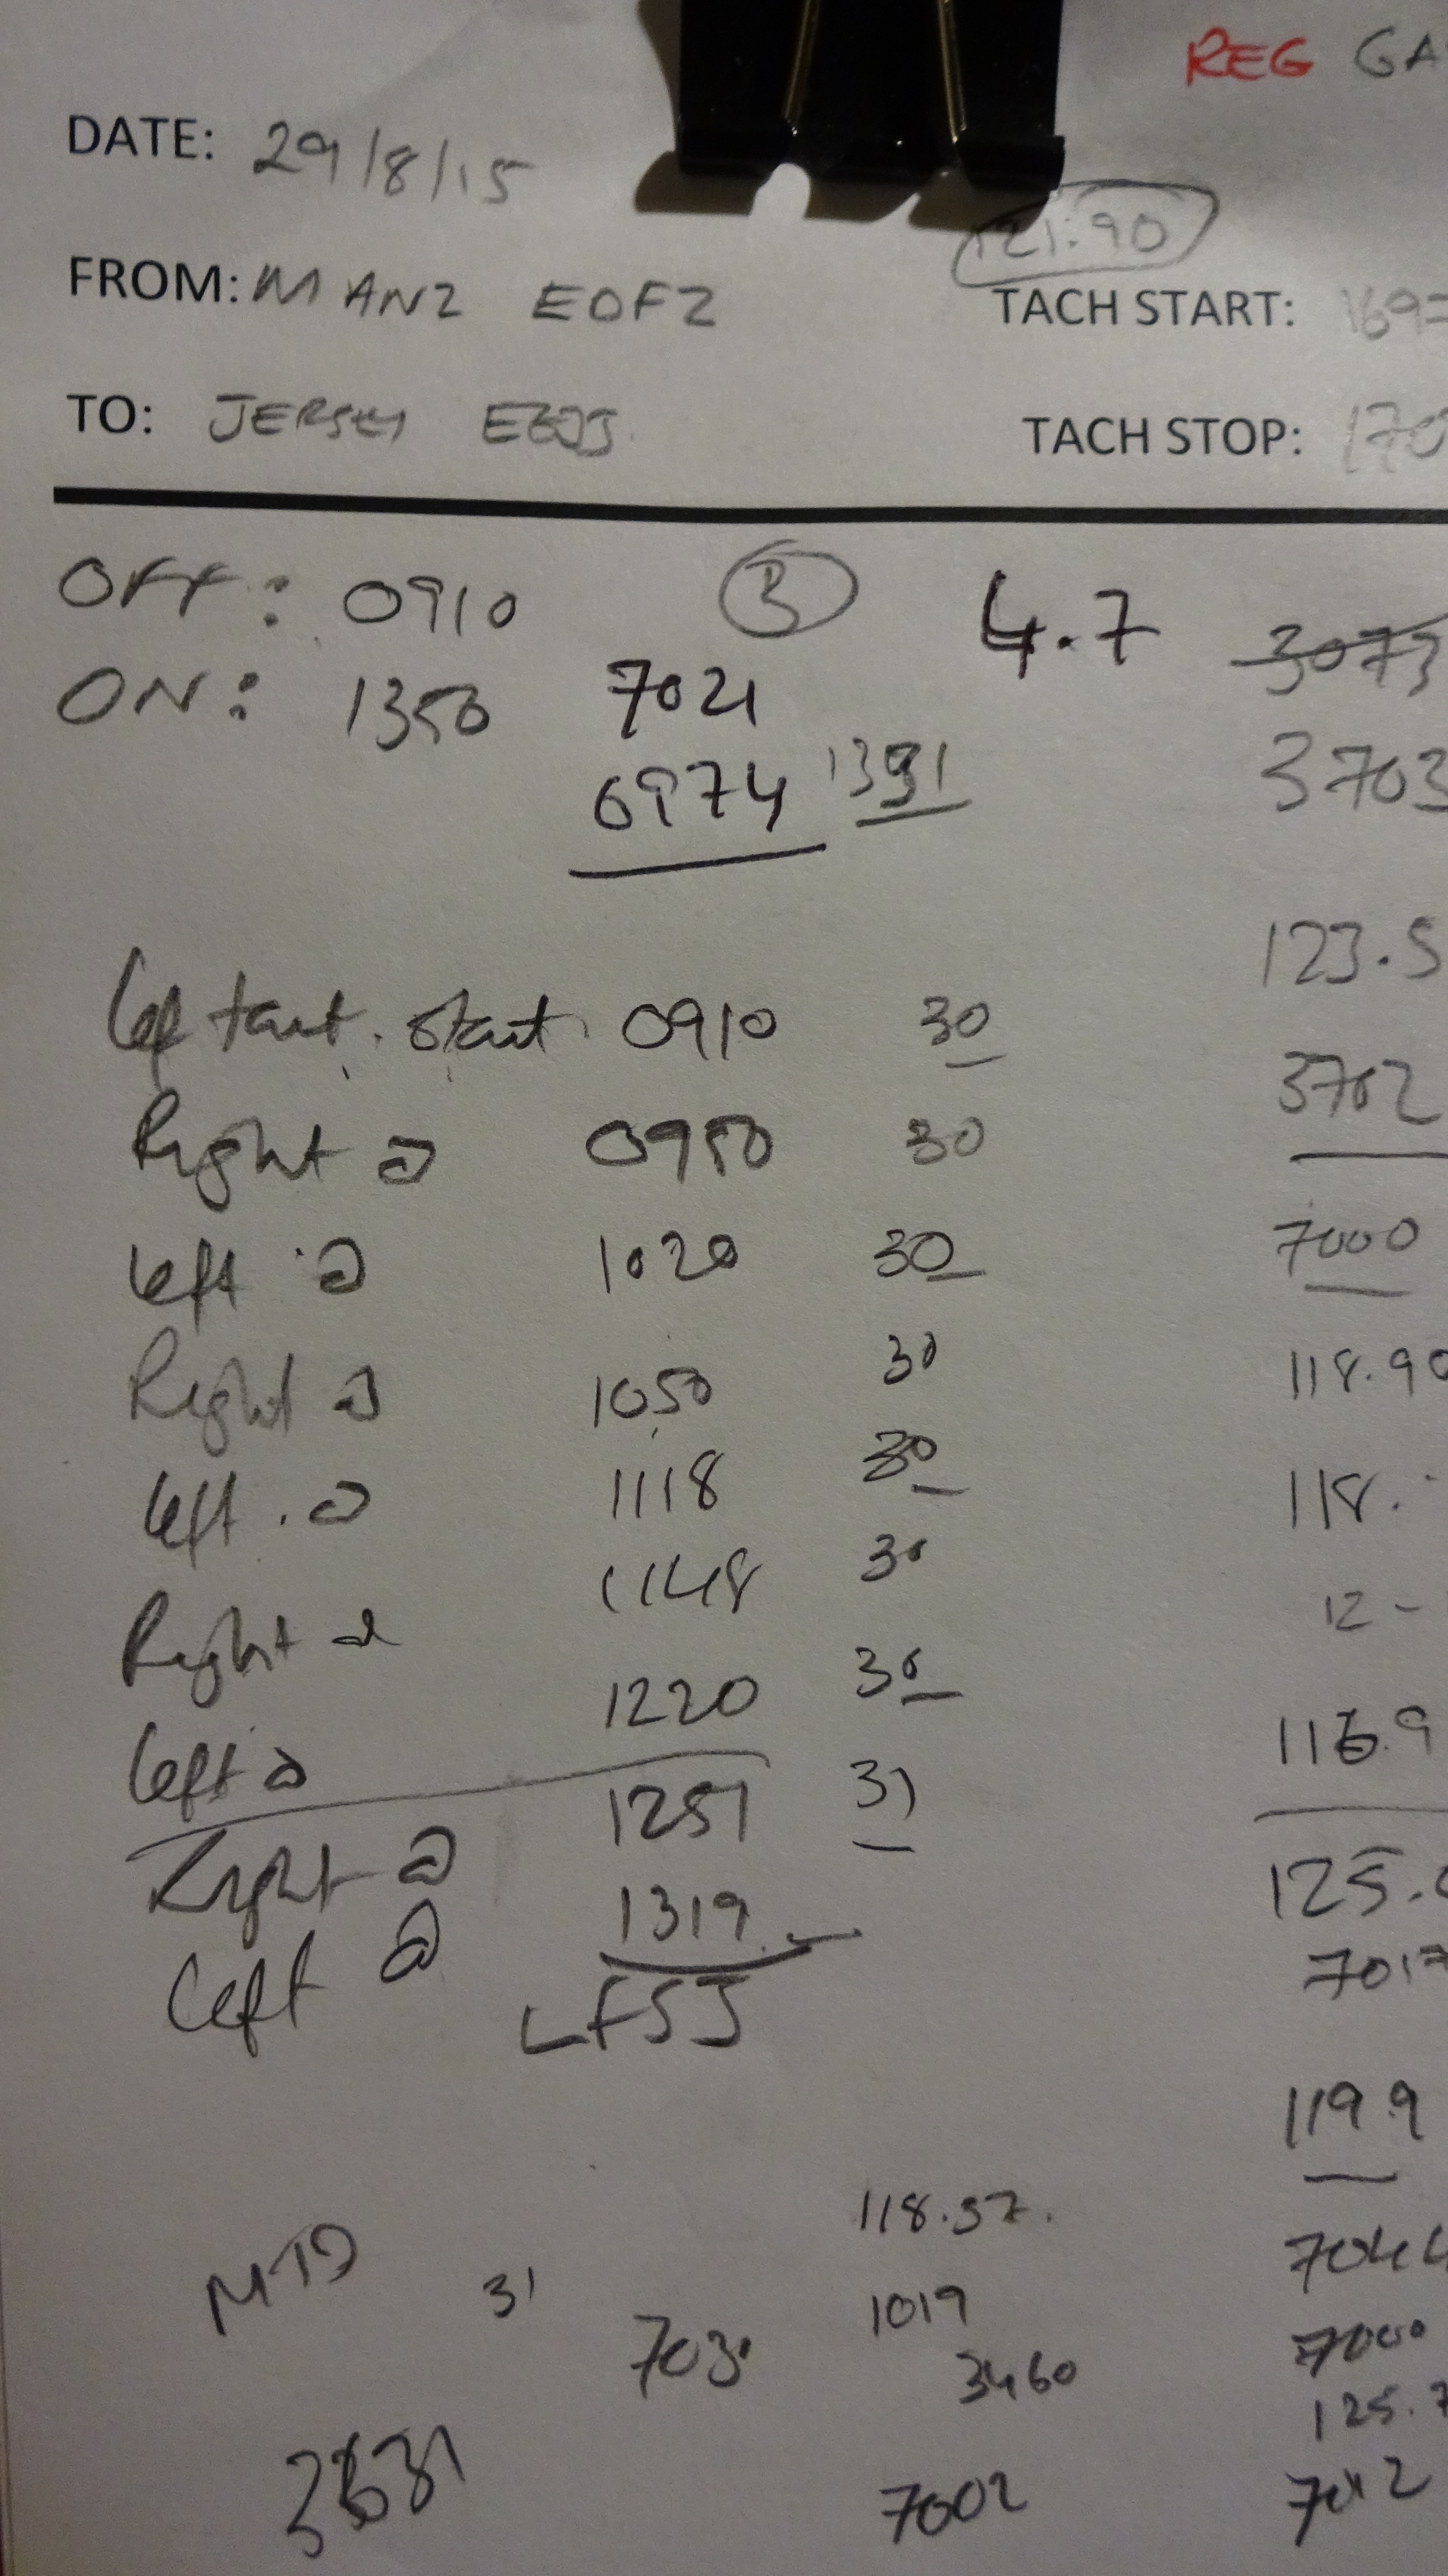 REG GA
DATE: 29/8/15
121.90
FROM: MANZ EDFZ
TACH START: 1697
TO: JERSEY EGJJ
TACH STOP: 170
OFF: 0910
B
4.7
3073
ON: 1350
7021
6974 1391
3703
123.5
Left tank start 0910 30
3702
Right @ 0950 30
Left @ 1020 30
7000
Right @ 1050 30
118.90
Left @ 1118 30
118.
Right @ 1148 30
12-
Left @ 1220 30
116.9
Right @ 1251 31
125.
Left @ 1319
7017
LFSJ
119.9
118.37.
MTD 31
7044
1019
703
7000
3460
125.7
7002
7042